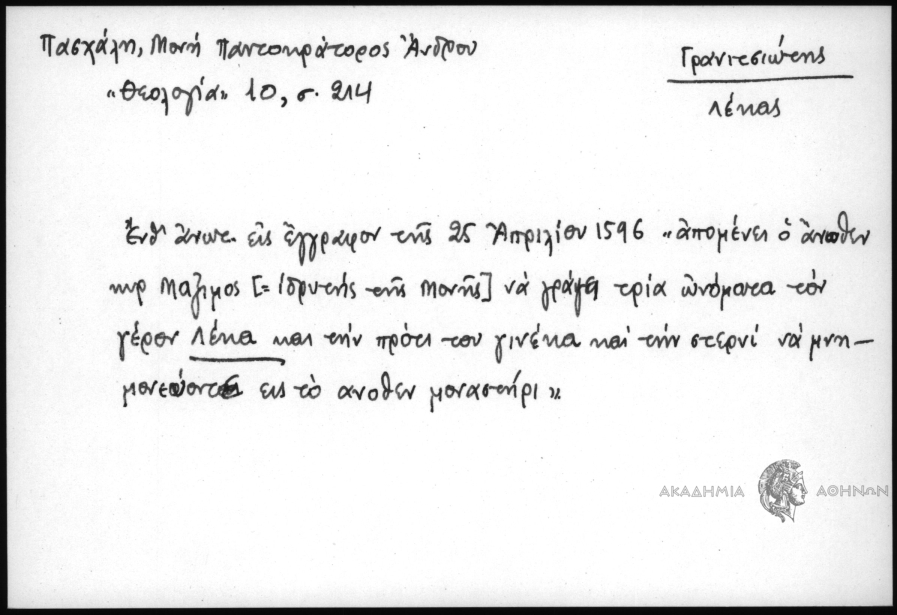 Πασχάλη, Μονή Παντοκράτορος Ἄνδρου
Γραντεσιώτης
«Θεολογία» 10, σ. 214
Λέκας
Ἔνθ' ἄνωτ. εἰς ἔγγραφον τῆς 25 Ἀπριλίου 1596 «ἀπομένει ὁ ἄνοθεν
κηρ Μάξιμος [= ἱδρυτής τῆς Μονῆς] νὰ γράψη τρία ὠνόματα τὸν
γέρον Λέκα και τὴν πρότι του γινέκα καὶ τὴν στερνί νὰ μνη-
μονεύοντε εις τὸ ανοθεν μοναστήρι».
ΑΚΑΔΗΜΙΑ ΑΘΗΝΩΝ